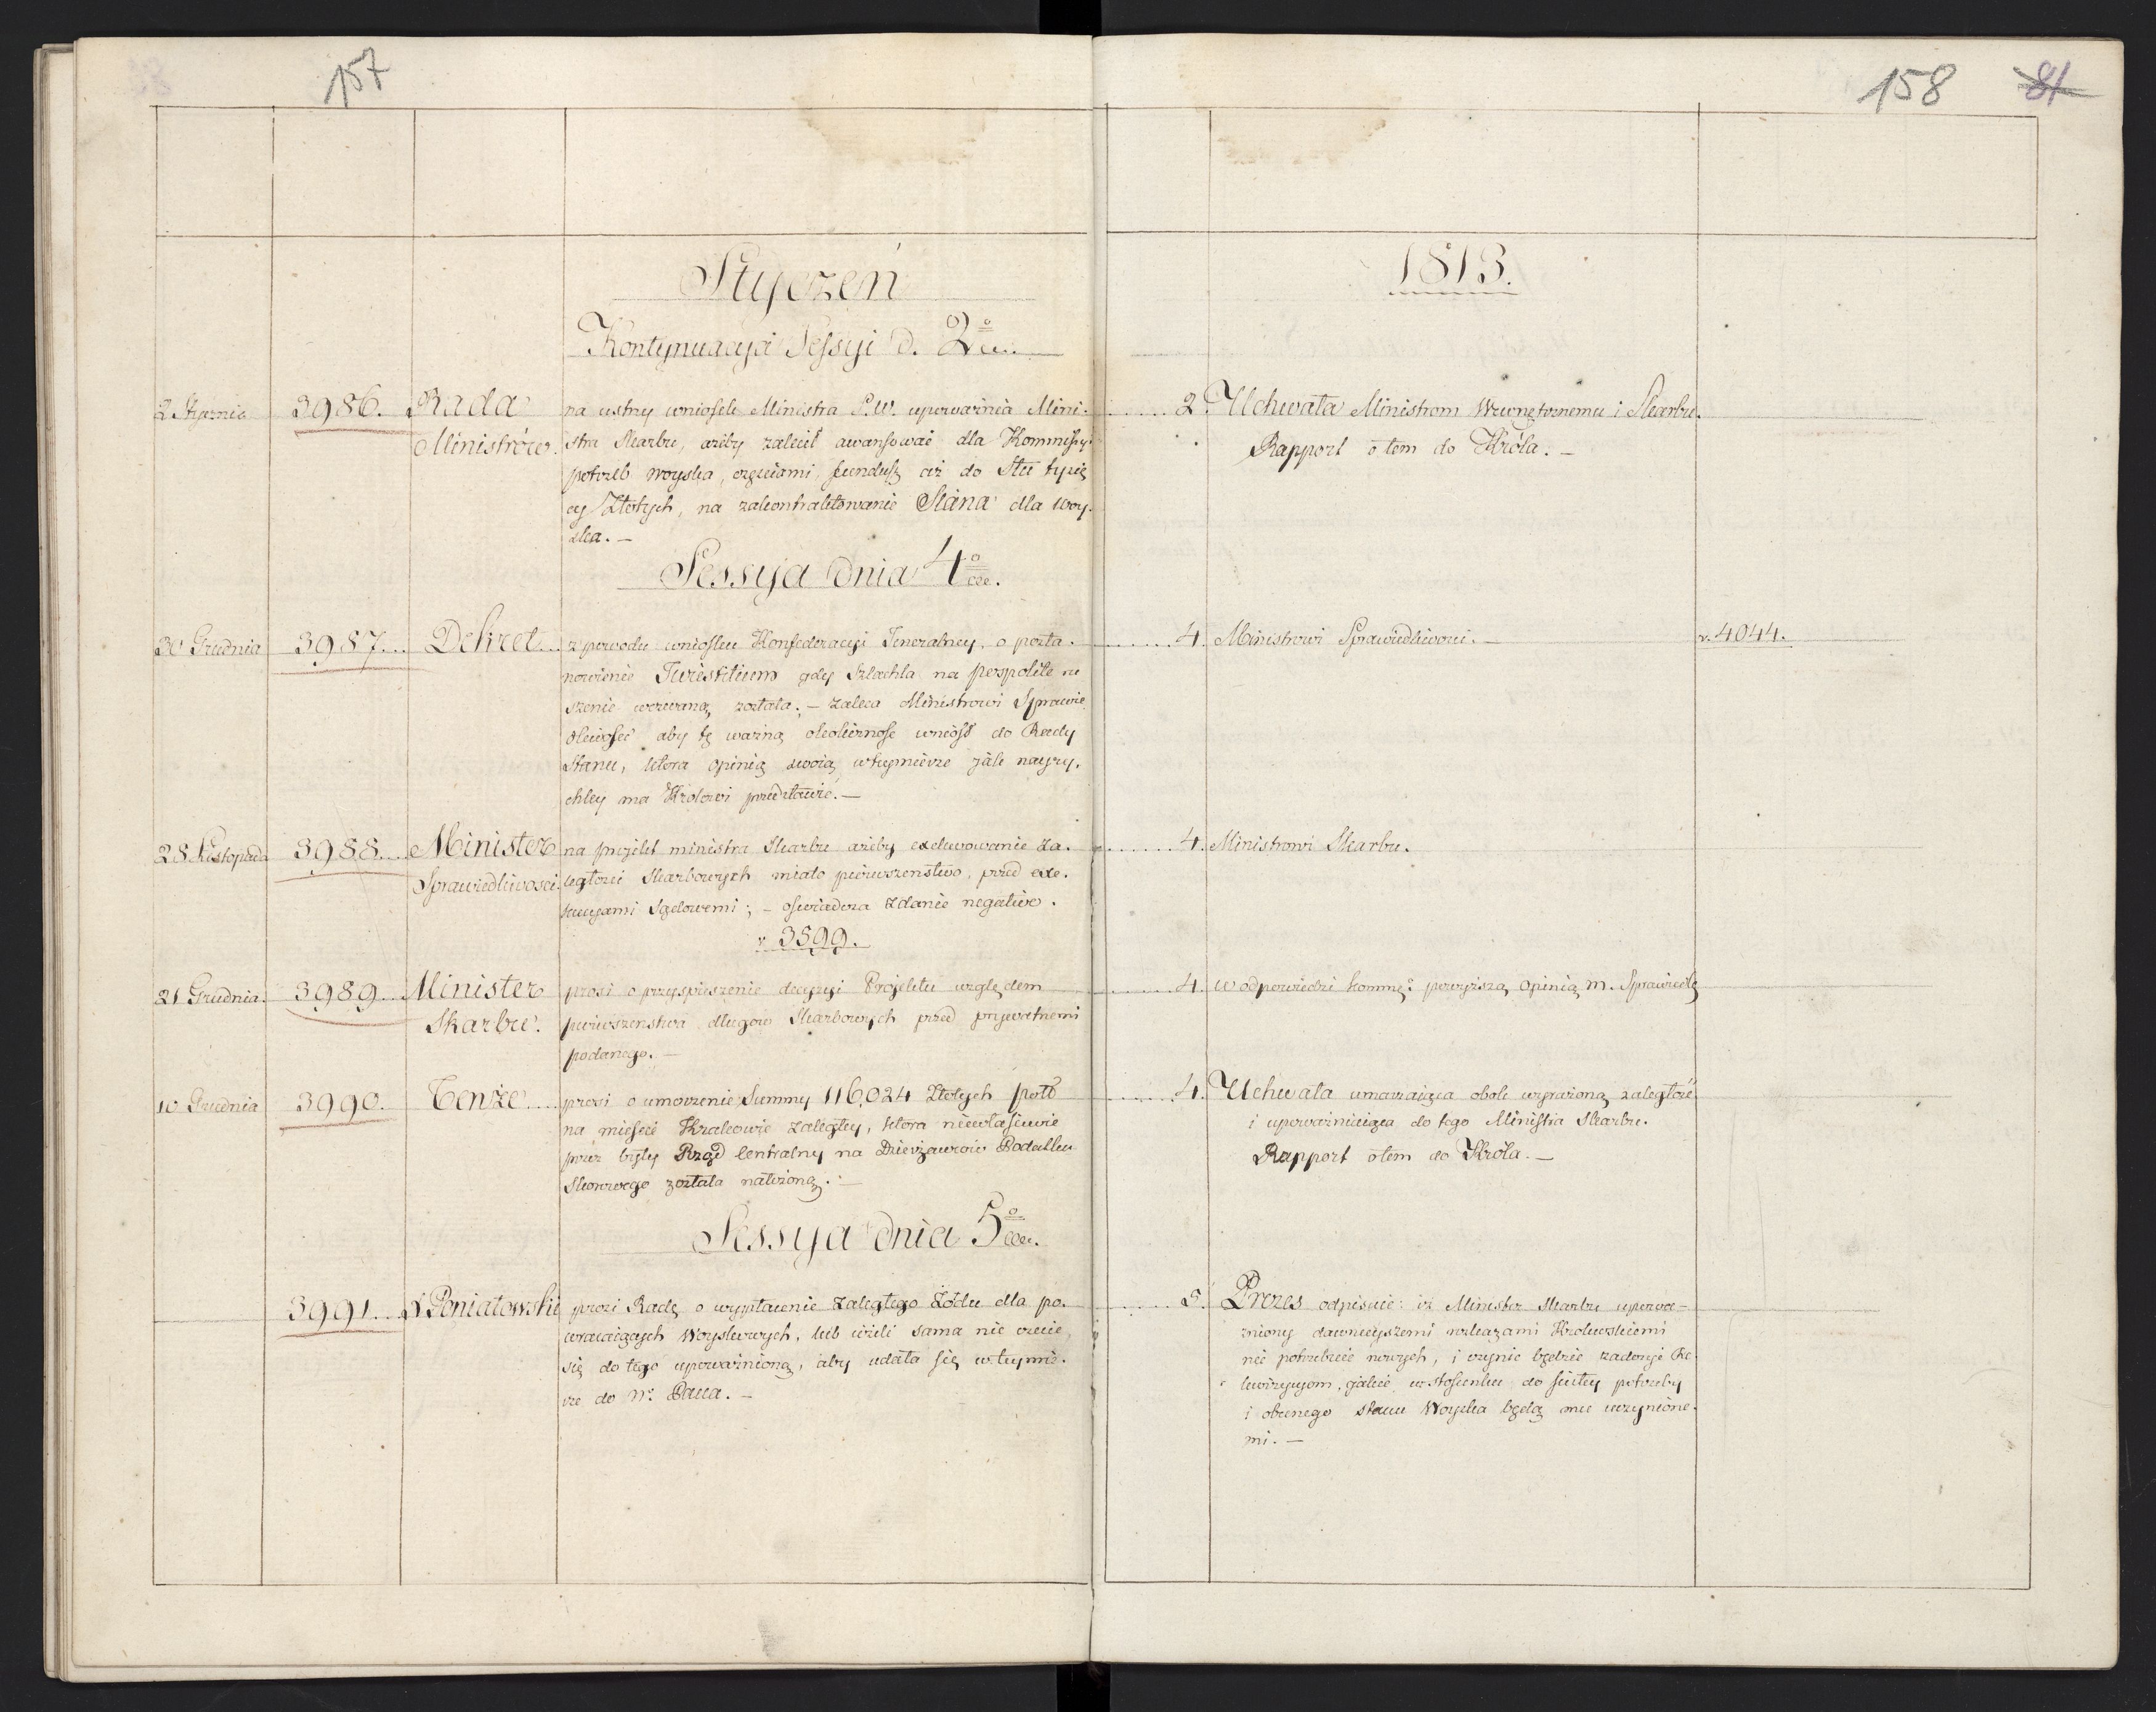 157
158 81
Styczeń
1813.
Kontynuacya Sessyi d. 2°
2 Stycznia 3986. Rada Ministrów.
na ustny wniosek Ministra S.W. upoważnia Mini-
stra Skarbu, ażeby zalecił awansować dla Kommissyi
potrzeb woyska, częściami fundusz aż do Stu tysię
cy Złotych, na zakontraktowanie Siana dla woy-
ska. —
2. Uchwała Ministrom Wewnętrznemu i Skarbu.
Rapport o tem do Króla. —
Sessya dnia 4°
30 Grudnia 3987... Dekret...
z powodu wniosku Konfederacyi Jeneralney, o posta-
nowienie Jurestitium gdy Szlachta na pospolite ru
szenie wezwaną została; — zaleca Ministrowi Sprawie
dliwości aby tę ważną okoliczność wniósł do Rady
Stanu, która opinią swoią wteymierze jak nayry-
chley ma Królowi przedstawić. —
4. Ministrowi Sprawiedliwości. —
v. 4044.
28 Listopada 3988... Minister Sprawiedliwosci.
na projekt ministra Skarbu ażeby exekwowanie za-
ległości Skarbowych miało pierwszeństwo, przed exe-
kucyami Sądowemi; — oświadcza zdanie negative.
v. 3599.
4. Ministrowi Skarbu.
21 Grudnia. 3989... Minister Skarbu.
prosi o przyspieszenie decyzyi Projektu względem
pierwszenstwa długow Skarbowych przed prywatnemi
podanego. —
4. w odpowiedzi komm: powyższą opinią M. Sprawiedl
10 Grudnia 3990. Tenże...
prosi o umorzenie Summy 116,024 Złotych
na mieście Krakowie zaległey, która niewłaściwie
przez były Rząd Centralny na Dzierżawców Podatku
została nałożoną. —
4. Uchwała umarzaiąca obok wyrażoną zaległość
i upoważniaiąca do tego Ministra Skarbu.
Rapport o tem do Króla. —
Sessya dnia 5°
3991... X Poniatowski
prosi Radę o wypłacenie zaległego Żołdu dla po-
wracaiących Woyskowych, lub ieżeli sama nie czuie
się do tego upoważnioną, aby udała się w teymie-
rze do N. Pana. —
5. Prezes odpisuie: iż Minister Skarbu upowa-
żniony dawnieyszemi rozkazami Królewskiemi
nie potrzebuie nowych, i czynić będzie zadosyć Re
kwizycyom, jakie w stosunku do ścisłey potrzeby
i obecnego stanu Woyska będą mu uczynione-
mi. —